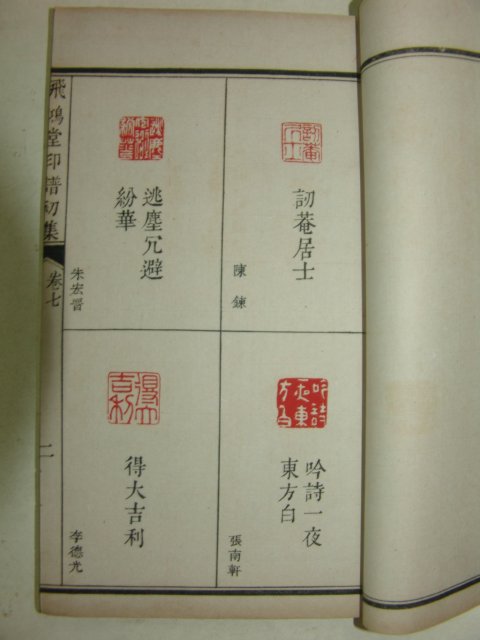 訒菴居士
陳鍊
吟詩一夜
東方白
張南軒
逃塵冗避
紛華
朱宏晋
得大吉利
李德光
飛鴻堂印譜初集
卷七
二